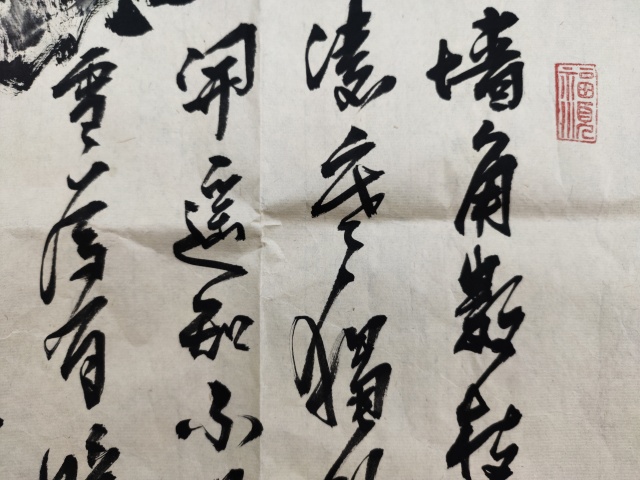 墙角數枝
凌寒獨
開遥知不
雪為有暗